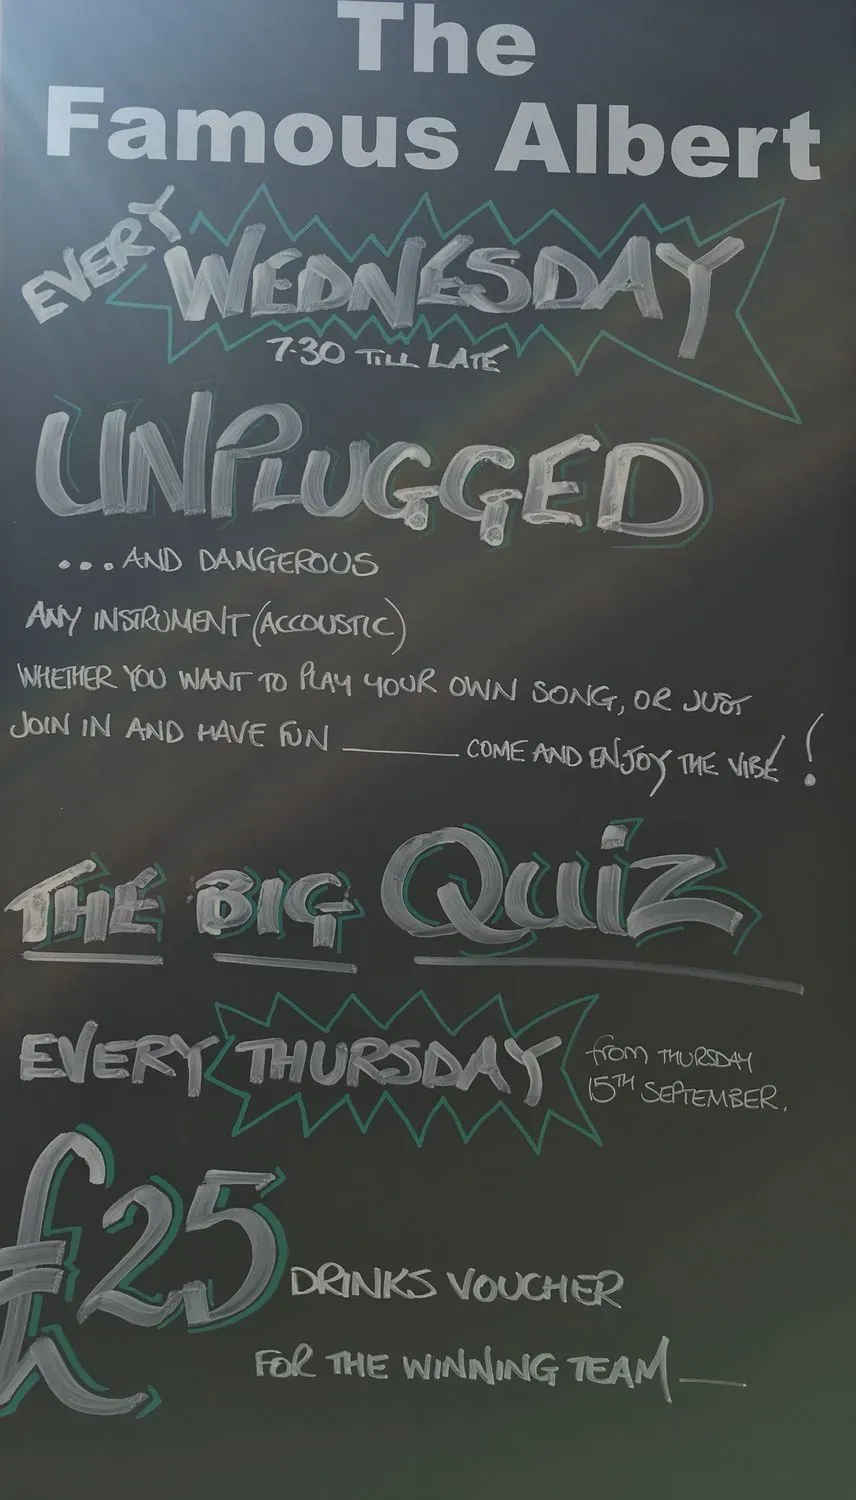 The
Famous Albert
EVERY WEDNESDAY
7.30 TILL LATE
UNPLUGGED
...AND DANGEROUS
ANY INSTRUMENT (ACCOUSTIC)
WHETHER YOU WANT TO PLAY YOUR OWN SONG, OR JUST
JOIN IN AND HAVE FUN ______ COME AND ENJOY THE VIBE!
THE BIG QUIZ
EVERY THURSDAY
from THURSDAY
15TH SEPTEMBER.
£25 DRINKS VOUCHER
FOR THE WINNING TEAM_